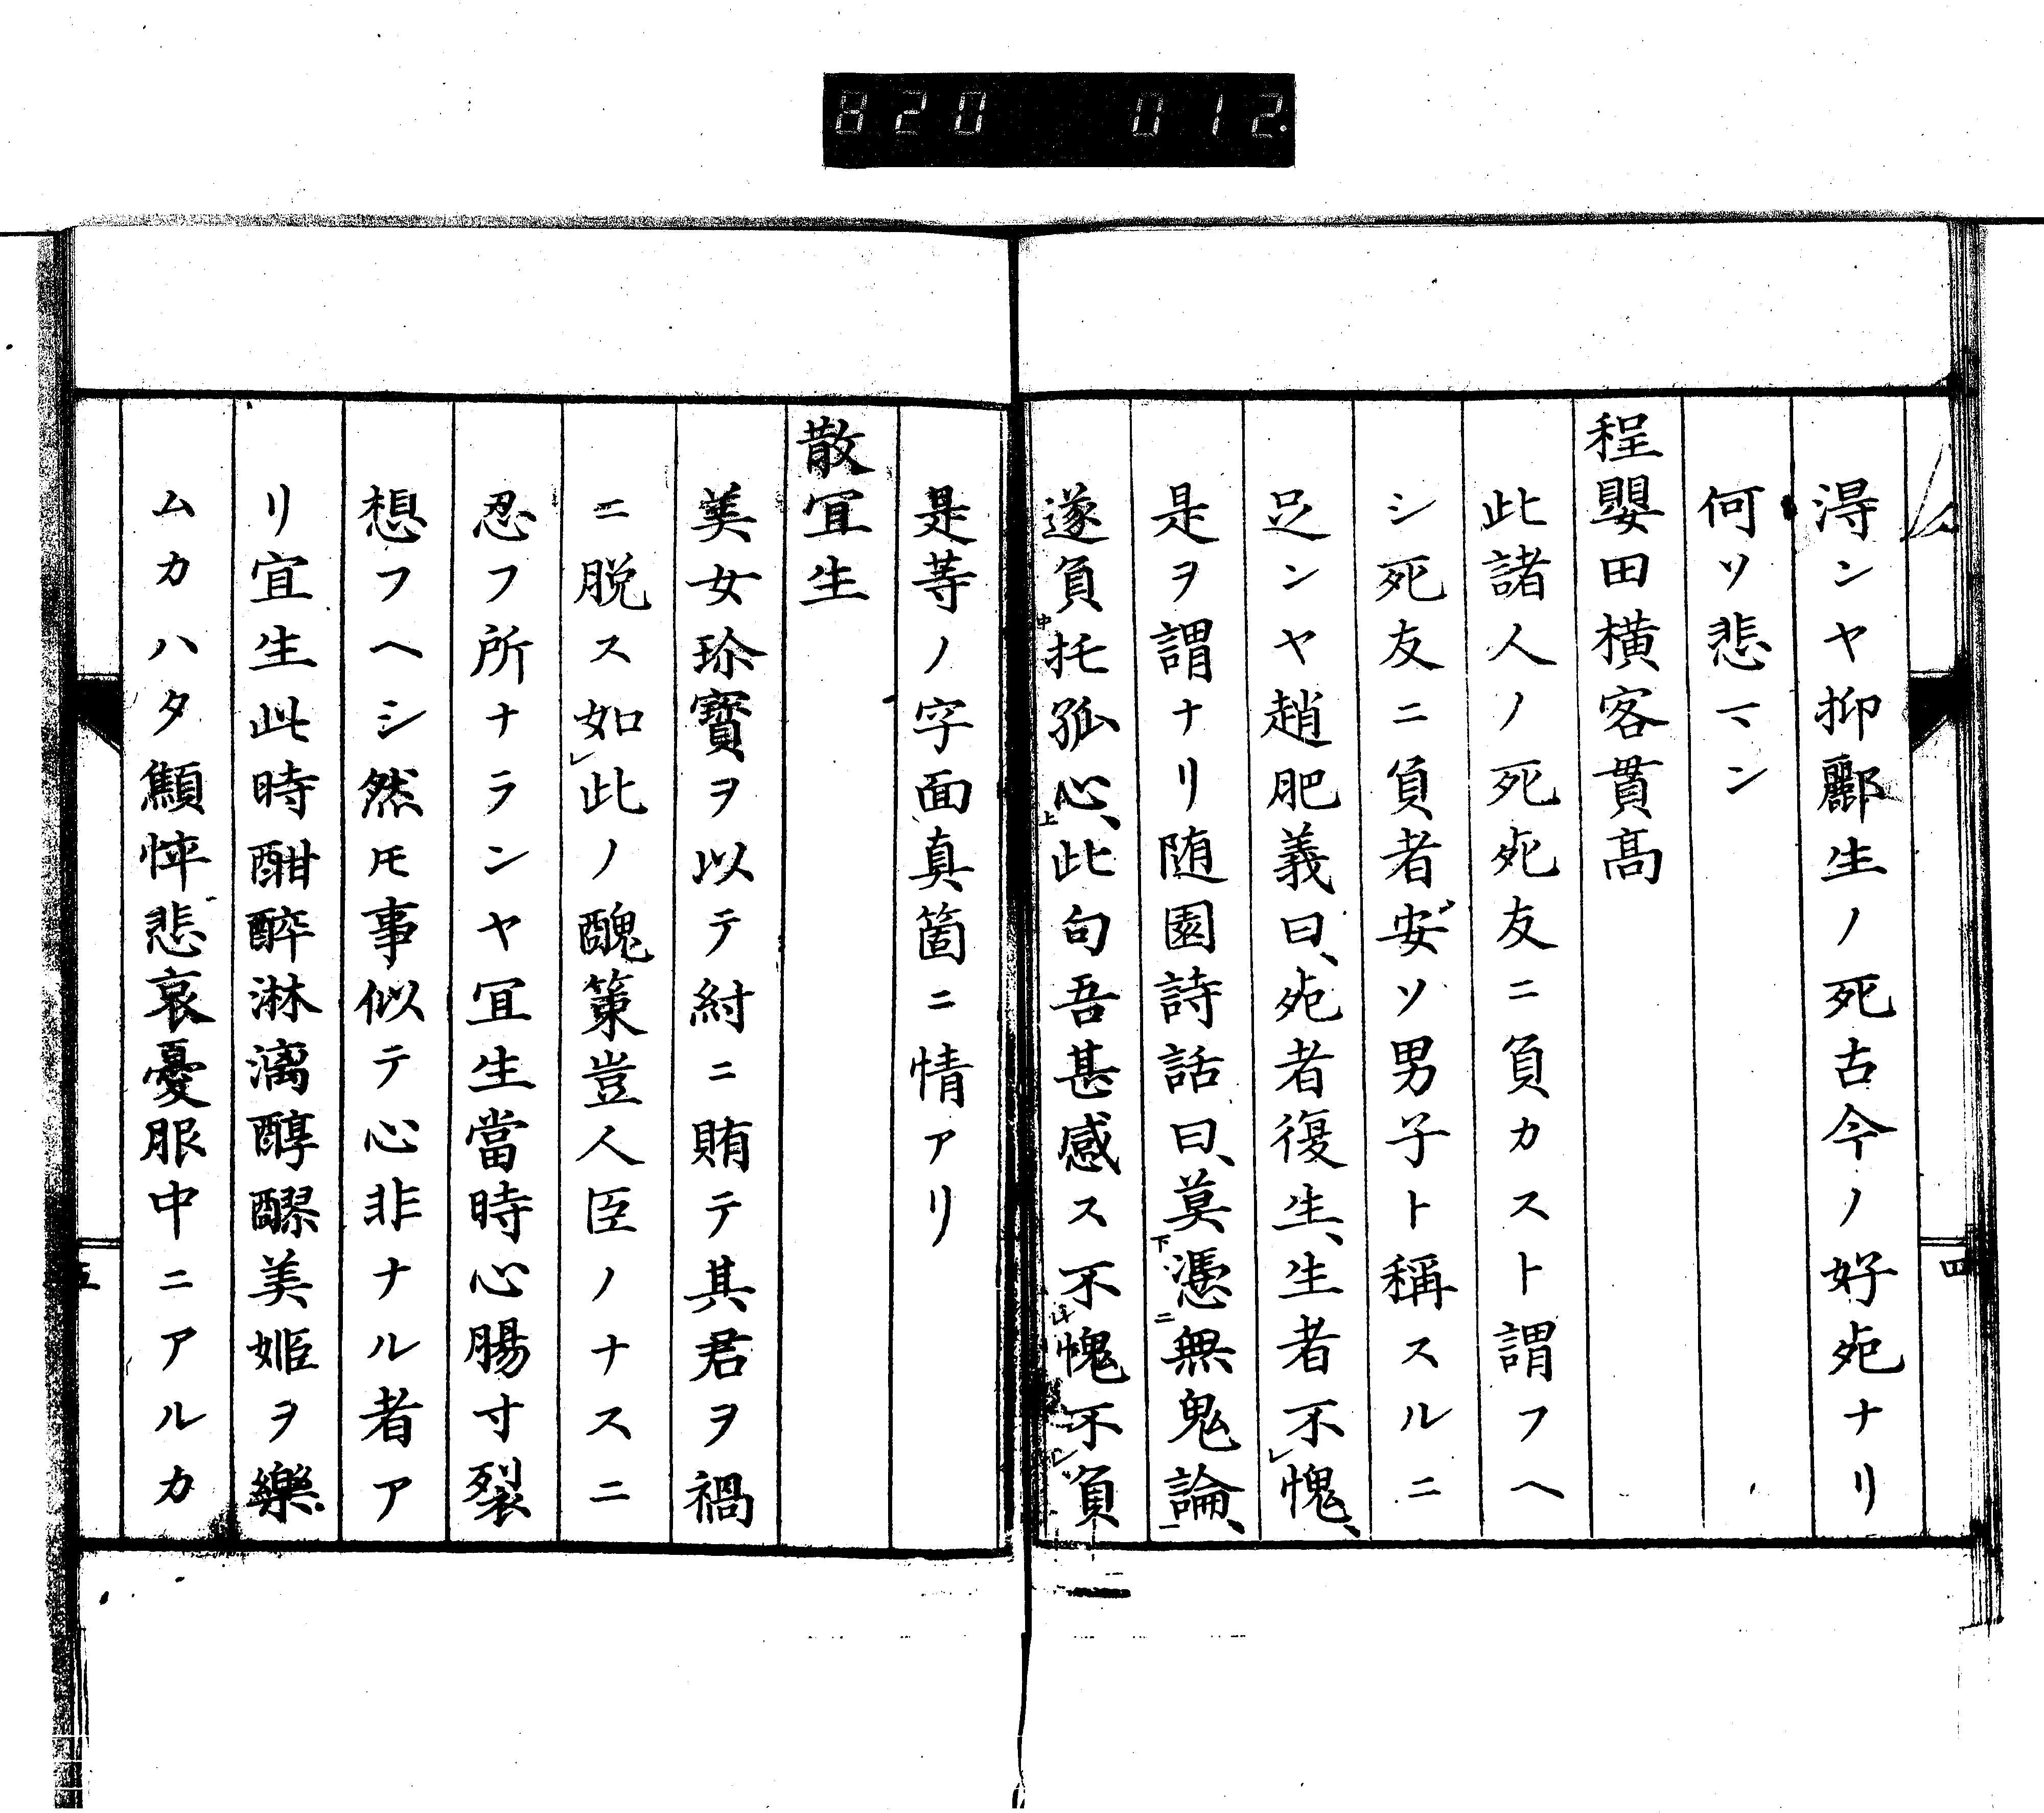 820 012
得ンヤ抑酈生ノ死古今ノ好死ナリ
何ソ悲マン
程嬰田橫客貫高
此諸人ノ死死友ニ負カスト謂フヘ
シ死友ニ負者安ソ男子ト稱スルニ
足ンヤ趙肥義曰、死者復生、生者不レ愧、
是ヲ謂ナリ随園詩話曰、莫下憑二無鬼論一、
遂負中托孤心上、此句吾甚感ス不レ愧不レ負
四
是等ノ字面真箇ニ情アリ
散宜生
美女珍寶ヲ以テ紂ニ賄テ其君ヲ禍
ニ脱ス如レ此ノ醜策豈人臣ノナスニ
忍フ所ナランヤ宜生當時心腸寸裂
想フヘシ然モ事似テ心非ナル者ア
リ宜生此時酣醉淋漓醇醪美姫ヲ樂
ムカハタ顦悴悲哀憂服中ニアルカ
五